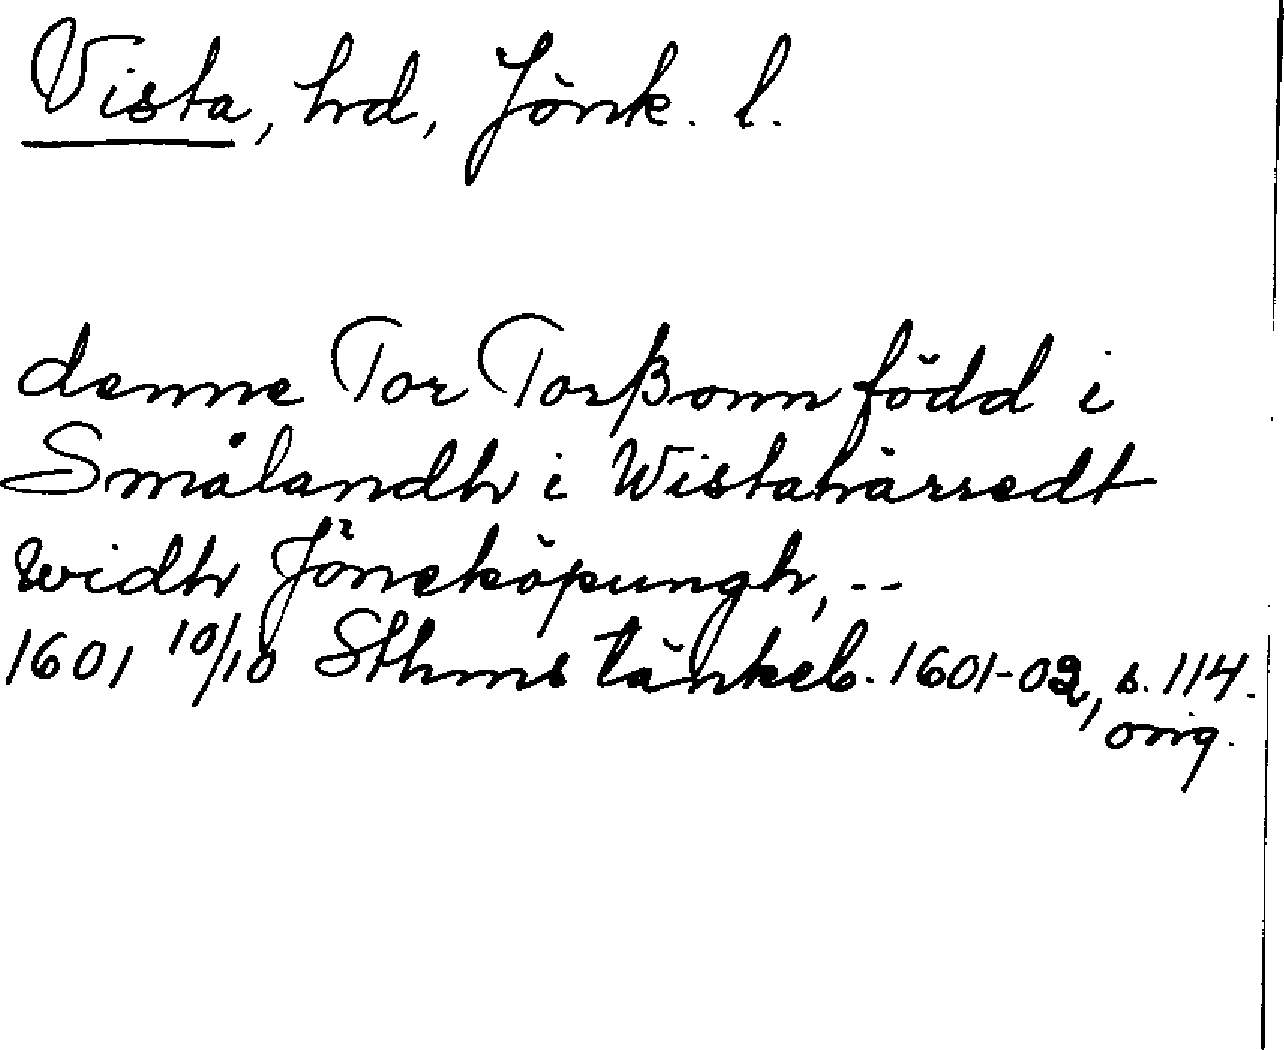 Vista, hd, Jönk. l.
denne Tor Torßonn född i
Smålandh i Wistahärredt
widh Jöneköpungh, --
1601 10/10 Sthms tänkeb. 1601-02, s. 114.
orig.